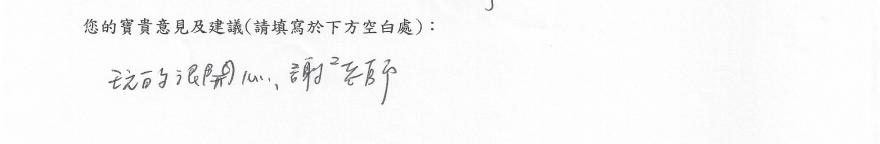 您的寶貴意見及建議(請填寫於下方空白處)：
玩的很開心、謝²老師